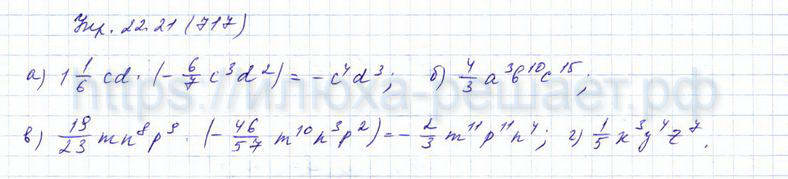 Упр. 22.21 (717)
а) 1 1/6 cd · (- 6/7 c³d²) = - c⁴d³; б) 4/3 a³b¹⁰c¹⁵;
в) 19/23 mn⁸p⁹ · (- 46/57 m¹⁰n³p²) = - 2/3 m¹¹p¹¹n⁴; г) 1/5 x³y⁴z⁷.
https://илюха-решает.рф